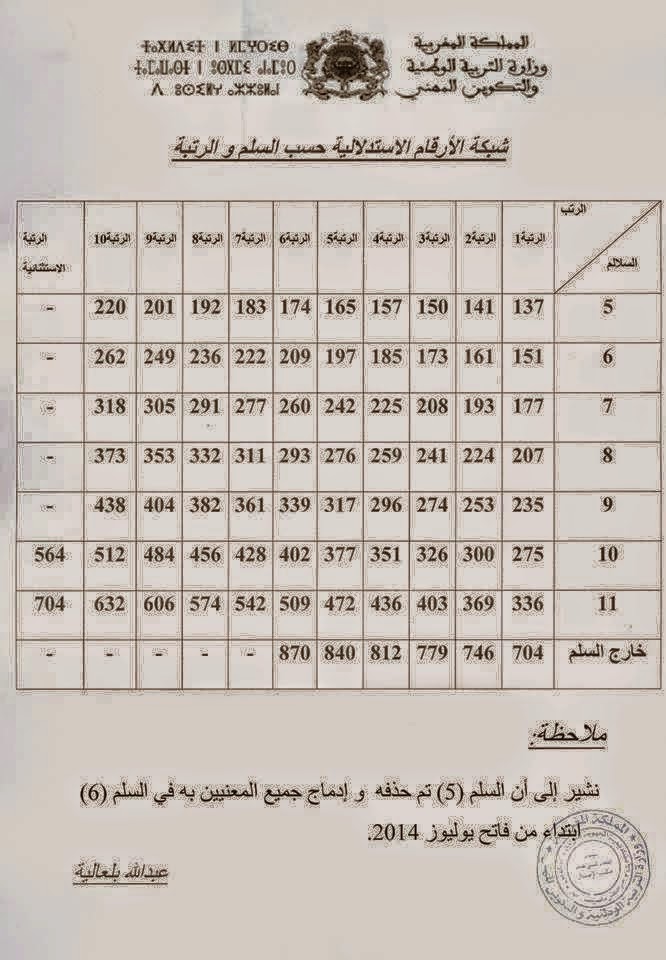 المملكة المغربية
وزارة التربية الوطنية
والتكوين المهني
ⵜⴰⴳⵍⴷⵉⵜ ⵏ ⵍⵎⵖⵔⵉⴱ
ⵜⴰⵎⴰⵡⴰⵙⵜ ⵏ ⵓⵙⴳⵎⵉ ⴰⵏⴰⵎⵓⵔ
ⴷ ⵓⵙⵙⵎⵖⵔ ⴰⵣⵣⵓⵍⴰⵏ
شبكة الأرقام الاستدلالية حسب السلم و الرتبة
الرتب السلالم الرتبة1 الرتبة2 الرتبة3 الرتبة4 الرتبة5 الرتبة6 الرتبة7 الرتبة8 الرتبة9 الرتبة10 الرتبة الاستثنائية
5 137 141 150 157 165 174 183 192 201 220 -
6 151 161 173 185 197 209 222 236 249 262 -
7 177 193 208 225 242 260 277 291 305 318 -
8 207 224 241 259 276 293 311 332 353 373 -
9 235 253 274 296 317 339 361 382 404 438 -
10 275 300 326 351 377 402 428 456 484 512 564
11 336 369 403 436 472 509 542 574 606 632 704
خارج السلم 704 746 779 812 840 870 - - - - -
ملاحظة:
نشير إلى أن السلم (5) تم حذفه و إدماج جميع المعنيين به في السلم (6)
ابتداء من فاتح يوليوز 2014.
عبدالله بلعالية